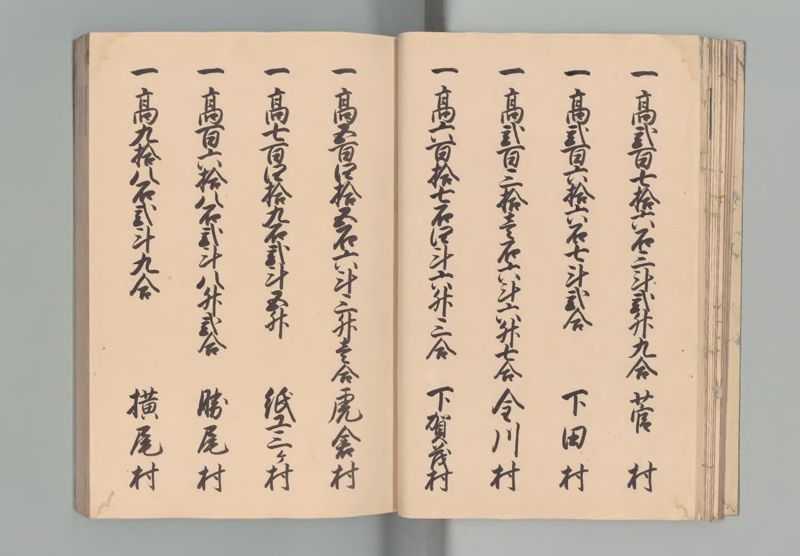 一高弐百七拾六石三斗弐升九合 菅村
一高弐百六拾六石七斗弐合 下田村
一高弐百三拾壱石六斗六升七合 今川村
一高六百拾七石四斗六升三合 下賀茂村
一高五百四拾五石六斗三升壱合 虎倉村
一高七百四拾九石弐斗五升 紙工三ヶ村
一高百六拾八石弐斗八升弐合 勝尾村
一高九拾八石弐斗九合 横尾村